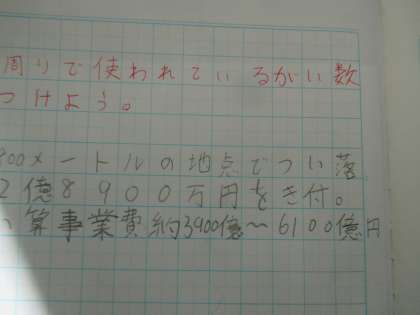 周りで使われているがい数
つけよう。
900メートルの地点でつい落
2億8900万円をき付。
算事業費約3900億〜6100億円